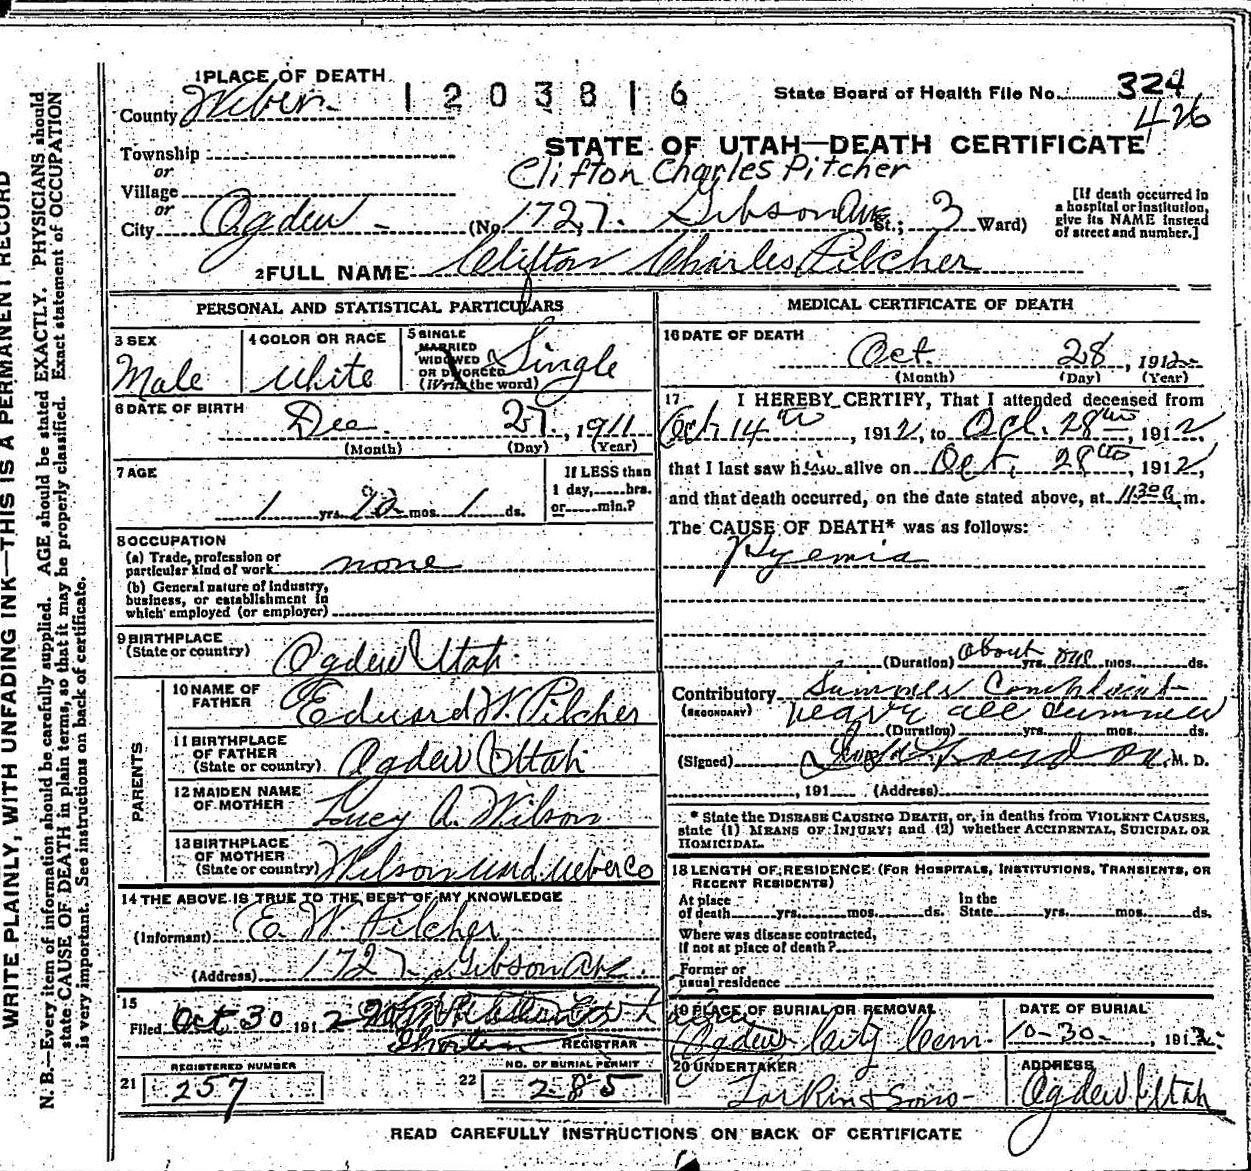 WRITE PLAINLY, WITH UNFADING INK—THIS IS A PERMANENT RECORD
N. B.—Every item of information should be carefully supplied. AGE should be stated EXACTLY. PHYSICIANS should
state CAUSE OF DEATH in plain terms, so that it may be properly classified. Exact statement of OCCUPATION
is very important. See instructions on back of certificate.
1 PLACE OF DEATH
County Weber
1203816
State Board of Health File No. 324
426
STATE OF UTAH—DEATH CERTIFICATE
Township
or
Village
or
City Ogden
Clifton Charles Pitcher
(No. 1727 Gibson Ave St.; 3 Ward)
[If death occurred in
a hospital or institution,
give its NAME instead
of street and number.]
2 FULL NAME Clifton Charles Pilcher
PERSONAL AND STATISTICAL PARTICULARS
3 SEX
Male
4 COLOR OR RACE
White
5 SINGLE
MARRIED
WIDOWED
OR DIVORCED
(Write the word)
Single
6 DATE OF BIRTH
Dec. 27, 1911
(Month) (Day) (Year)
7 AGE
yrs. mos. 1 ds.
If LESS than
1 day, hrs.
or min.?
8 OCCUPATION
(a) Trade, profession or
particular kind of work none
(b) General nature of industry,
business, or establishment in
which employed (or employer)
9 BIRTHPLACE
(State or country) Ogden Utah
PARENTS
10 NAME OF
FATHER Edward W. Pilcher
11 BIRTHPLACE
OF FATHER
(State or country) Ogden Utah
12 MAIDEN NAME
OF MOTHER Lucy A. Wilson
13 BIRTHPLACE
OF MOTHER
(State or country) Wilson ward. Weber Co
14 THE ABOVE IS TRUE TO THE BEST OF MY KNOWLEDGE
(Informant) E. W. Pilcher
(Address) 1727 Gibson Ave
15
Filed Oct 30 1912
REGISTRAR
REGISTERED NUMBER
21 257
NO. OF BURIAL PERMIT
22 285
MEDICAL CERTIFICATE OF DEATH
16 DATE OF DEATH
Oct. 28, 1912
(Month) (Day) (Year)
17 I HEREBY CERTIFY, That I attended deceased from
Oct 14th, 1912, to Oct. 28th, 1912,
that I last saw him alive on Oct. 28th, 1912,
and that death occurred, on the date stated above, at 11:30 a m.
The CAUSE OF DEATH* was as follows:
Pyemia
(Duration) about yrs. one mos. ds.
Contributory Summer Complaint
(SECONDARY) nearly all summer
(Duration) yrs. mos. ds.
(Signed) M. D.
, 191 (Address)
* State the DISEASE CAUSING DEATH, or, in deaths from VIOLENT CAUSES,
state (1) MEANS OF INJURY; and (2) whether ACCIDENTAL, SUICIDAL OR
HOMICIDAL.
18 LENGTH OF RESIDENCE (FOR HOSPITALS, INSTITUTIONS, TRANSIENTS, OR
RECENT RESIDENTS)
At place
of death yrs. mos. ds.
In the
State yrs. mos. ds.
Where was disease contracted,
if not at place of death?
Former or
usual residence
19 PLACE OF BURIAL OR REMOVAL
Ogden City Cem.
DATE OF BURIAL
10-30-, 1912
20 UNDERTAKER
Larkin & Sons
ADDRESS
Ogden Utah
READ CAREFULLY INSTRUCTIONS ON BACK OF CERTIFICATE